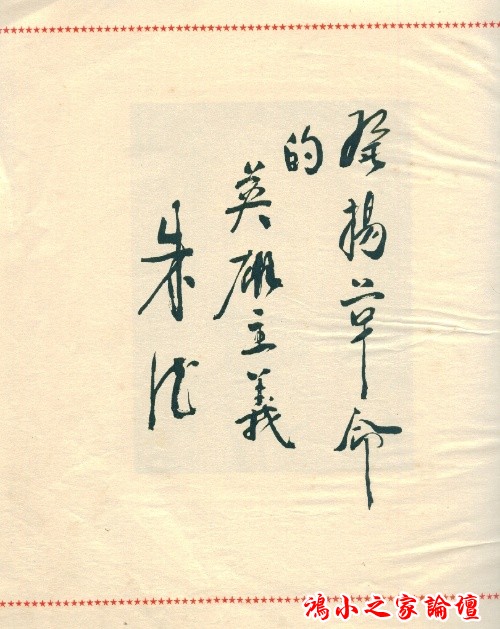 發揚革命
的
英雄主義
朱德
鴻小之家論壇